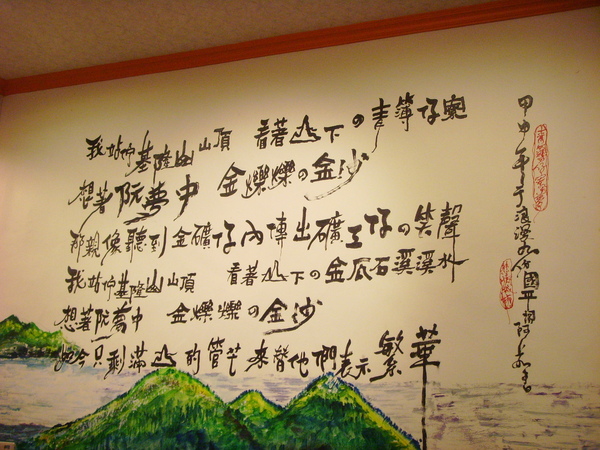 我站佇基隆山山頂 看著山下の青簿仔寮
想著阮夢中 金爍爍の金沙
那親像聽到金礦仔內傳出礦工仔の笑聲
我站佇基隆山山頂 看著山下の金瓜石溪溪水
想著阮夢中 金爍爍の金沙
如今只剩滿山的菅芒來替他們表示繁華
甲申年于浪漫九份國平